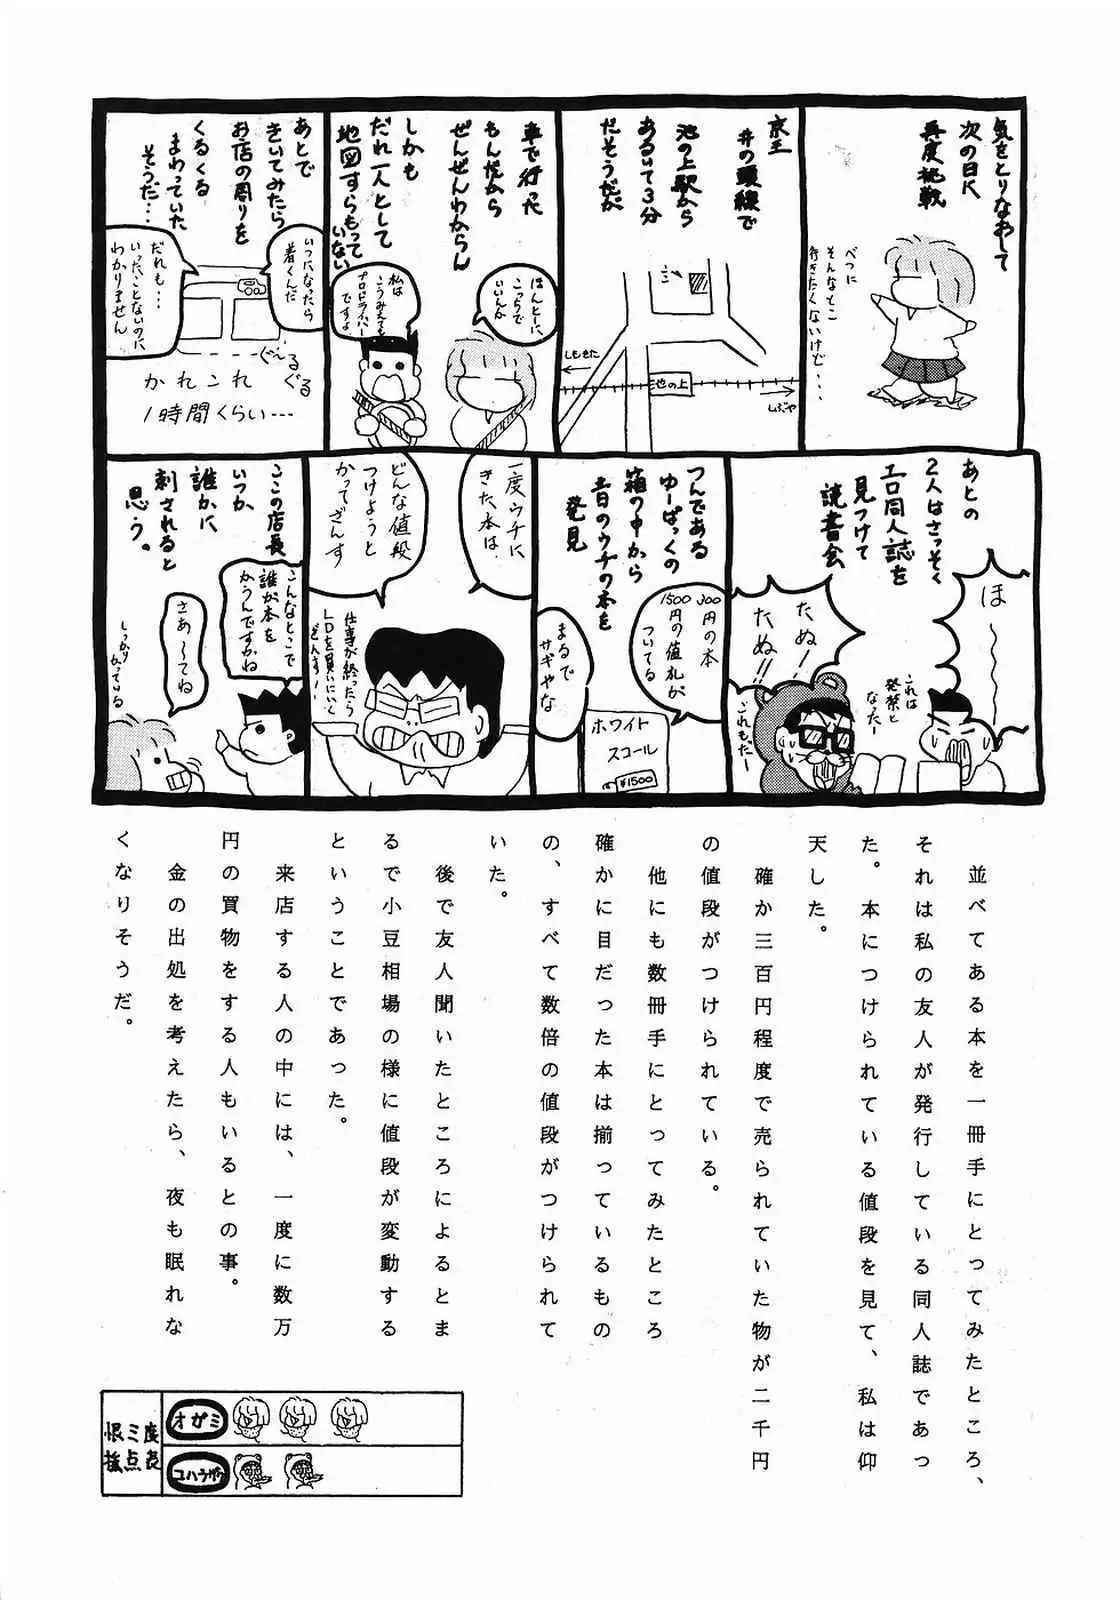 気をとりなおして
次の日に
再度挑戦
べつに
そんなとこ
行きたくないけど・・・
京王
井の頭線で
池の上駅から
あるいて3分
だそうだが
しもきた
池の上
しぶや
車で行った
もんだから
ぜんぜんわからん
しかも
だれ一人として
地図すらもって
いない
ほんとーに
こっちで
いいんか
私は
こうみえても
プロドライバー
ですよ
あとで
きいてみたら
お店の周りを
くるくる
まわっていた
そうだ・・・
いつになったら
着くんだ
だれも・・・
いったことないのに
わかりません
ぐ〜るぐる
かれこれ
1時間くらい・・・
あとの
2人はさっそく
エロ同人誌を
見つけて
読書会
ほ〜〜
たぬー!
たぬ!!
これは
発禁と
なったー
これもだー
つんである
ゆーぱっくの
箱の中から
昔のウチの本を
発見
300円の本
1500円の値札が
ついてる
まるで
サギやな
ホワイト
スコール
¥1500
一度ウチに
きた本は、
どんな値段
つけようと
かってざんす
仕事が終ったら
LDを買いにいく
ざんす!
ここの店長
いつか
誰かに
刺されると
思う。
こんなとこで
誰が本を
かうんですかね
さあ〜てね
しっかり
かっている
並べてある本を一冊手にとってみたところ、
それは私の友人が発行している同人誌であっ
た。本につけられている値段を見て、私は仰
天した。
確か三百円程度で売られていた物が二千円
の値段がつけられている。
他にも数冊手にとってみたところ
確かに目だった本は揃っているもの
の、すべて数倍の値段がつけられて
いた。
後で友人聞いたところによるとま
るで小豆相場の様に値段が変動する
ということであった。
来店する人の中には、一度に数万
円の買物をする人もいるとの事。
金の出処を考えたら、夜も眠れな
くなりそうだ。
オガミ
ユハラザキ